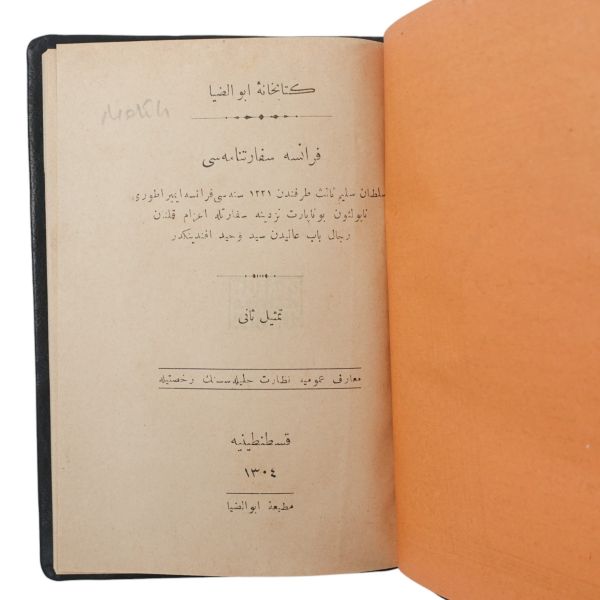 كتابخانهٔ ابوالضيا
فرانسه سفارتنامه‌سى
سلطان سليم ثالث طرفندن ١٢٢١ سنه‌سى فرانسه ايمپراطورى
ناپولئون بوناپارت نزدينه سفارتله اعزام قلنان
رجال باب عاليدن سيد وحيد افندينكدر
تمثيل ثانى
معارف عموميه نظارت جليله‌سنك رخصتيله
قسطنطينيه
١٣٠٤
مطبعهٔ ابوالضيا